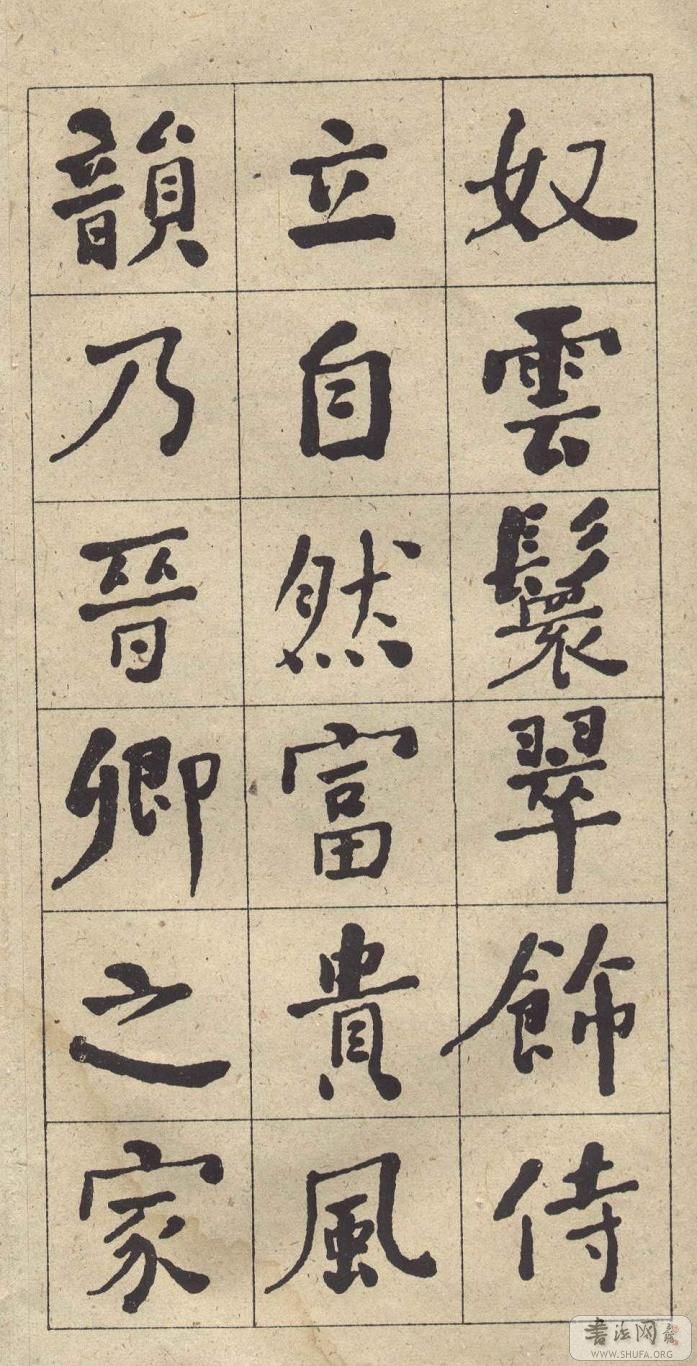 奴雲鬟翠飾侍
立自然富貴風
韻乃晉卿之家
書法网
WWW.SHUFA.ORG